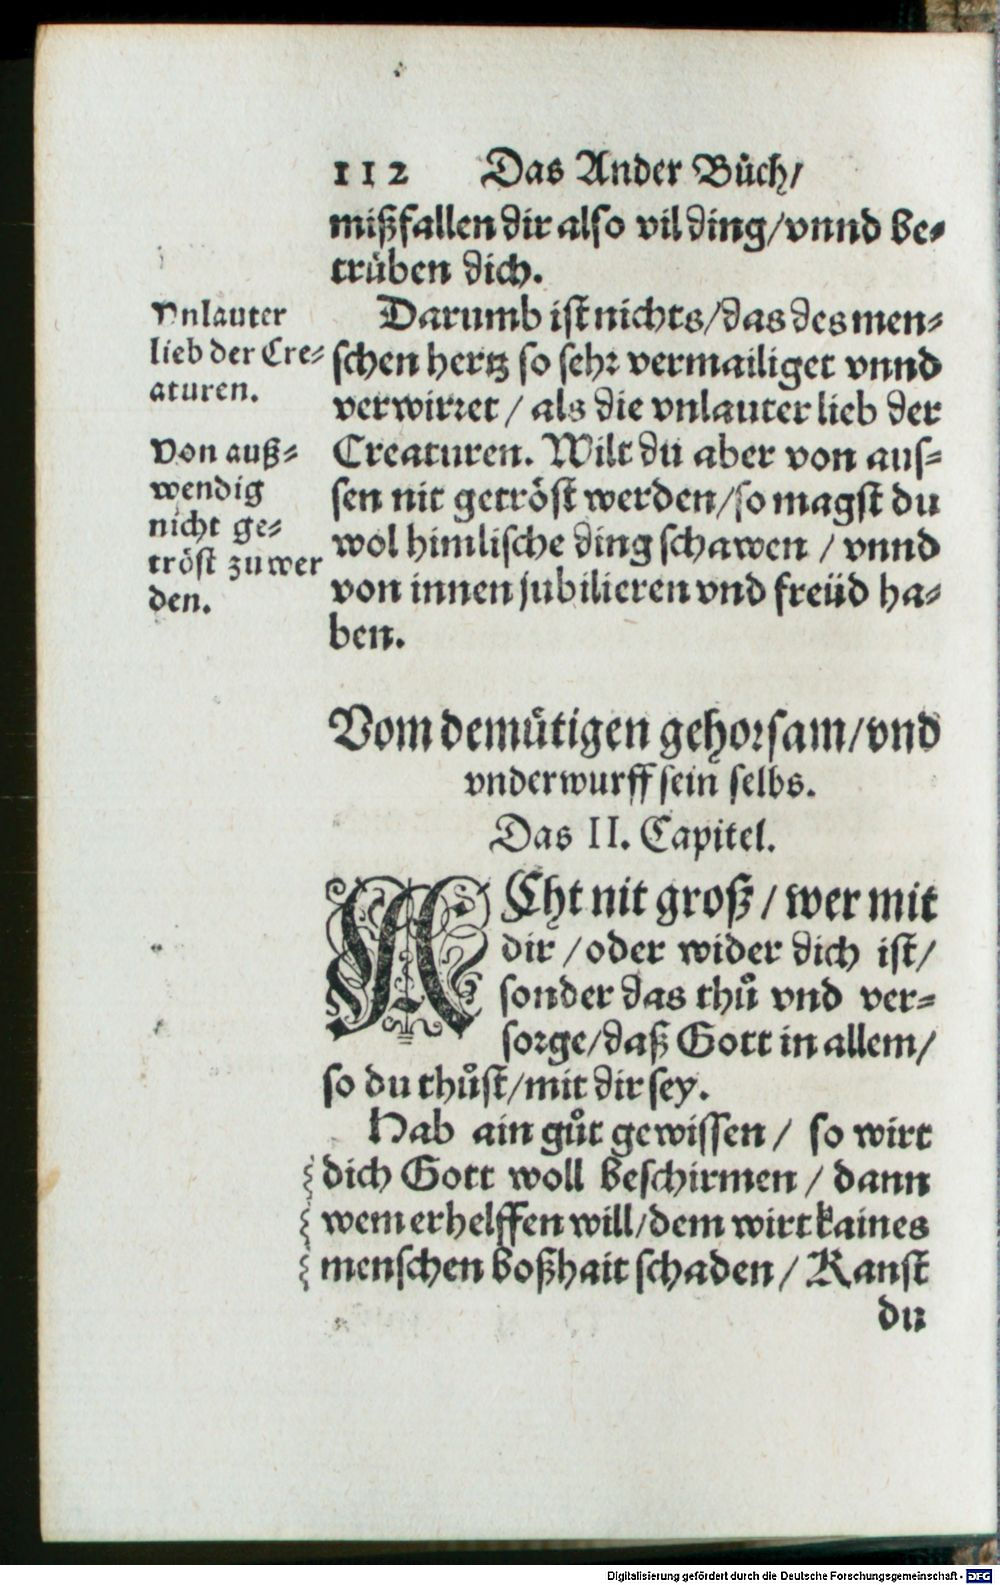 112 Das Ander Bůch/
mißfallen dir also vil ding/vnnd be-
trüben dich.
Darumb ist nichts/das des men-
schen hertz so sehr vermailiget vnnd
verwirret / als die vnlauter lieb der
Creaturen. Wilt du aber von aus-
sen nit getröst werden/so magst du
wol himlische ding schawen / vnnd
von innen jubilieren vnd freüd ha-
ben.
Vnlauter
lieb der Cre-
aturen.
Von auß-
wendig
nicht ge-
tröst zu wer
den.
Vom demütigen gehorsam/vnd
vnderwurff sein selbs.
Das II. Capitel.
ACht nit groß / wer mit
dir / oder wider dich ist/
sonder das thů vnd ver-
sorge/daß Gott in allem/
so du thůst/mit dir sey.
Hab ain gůt gewissen / so wirt
dich Gott woll beschirmen / dann
wem er helffen will/dem wirt kaines
menschen boßhait schaden / Kanst
du
Digitalisierung gefördert durch die Deutsche Forschungsgemeinschaft - DFG